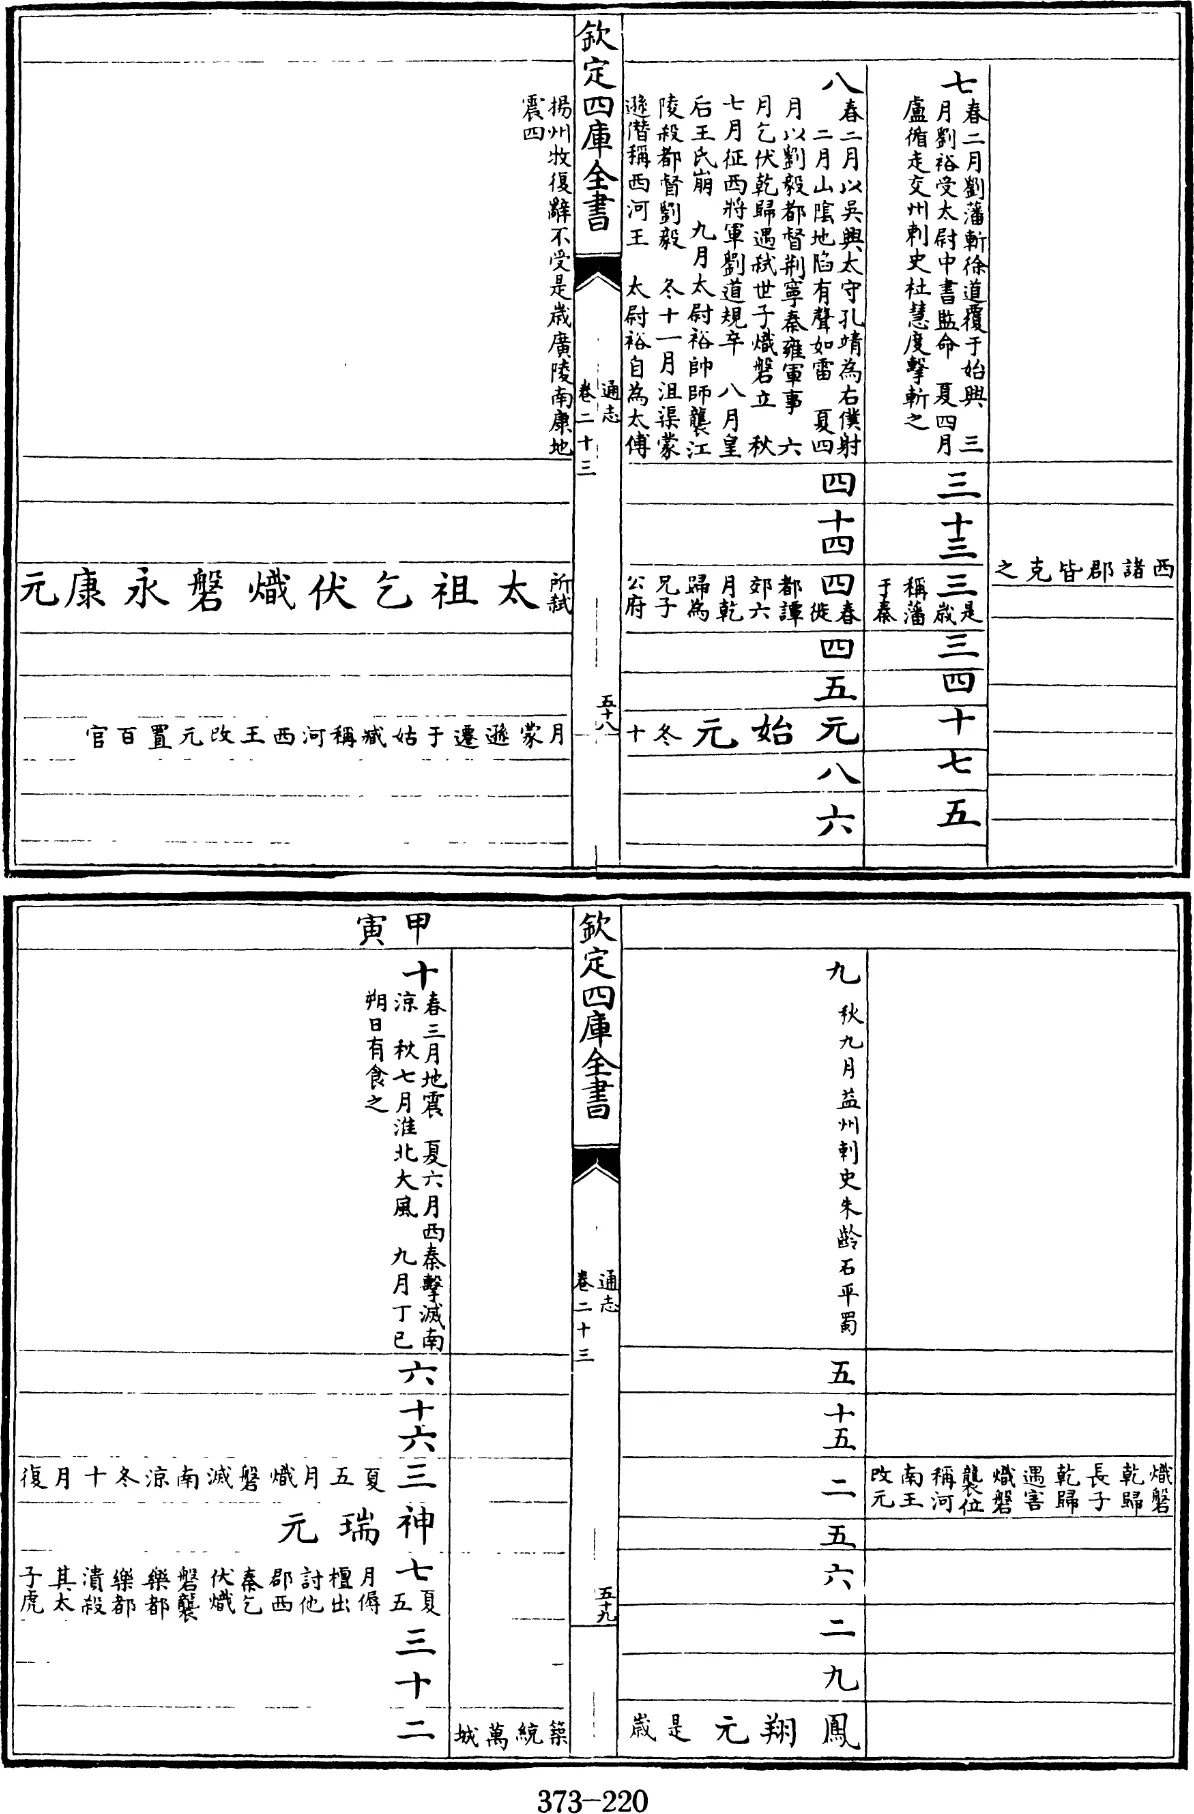 西諸郡皆克之
七
春二月劉藩斬徐道覆于始興　三
月劉裕受太尉中書監命　夏四月
盧循走交州刺史杜慧度擊斬之
三
十三
三
是歲
稱藩
于秦
三
四
十
七
五
八
春二月以吳興太守孔靖為右僕射
二月山陰地陷有聲如雷　夏四
月以劉毅都督荆寧秦雍軍事　六
月乞伏乾歸遇弑世子熾磐立　秋
七月征西將軍劉道規卒　八月皇
后王氏崩　九月太尉裕帥師襲江
陵殺都督劉毅　冬十一月沮渠蒙
遜僭稱西河王　太尉裕自為太傅
四
十四
四
春徙
都譚
郊六
月乾
歸為
兄子
公府
四
五
元始元
冬十
八
六
欽定四庫全書
通志
卷二十三
五十八
揚州牧復辭不受是歲廣陵南康地
震四
所弑
太祖乞伏熾磐永康元
月蒙遜遷于姑臧稱河西王改元置百官
熾磐
乾歸
長子
乾歸
遇害
熾磐
襲位
稱河
南王
改元
九
秋九月益州刺史朱齡石平蜀
五
十五
二
五
六
二
九
鳳翔元
是歲
欽定四庫全書
通志
卷二十三
五十九
築統萬城
甲寅
十
春三月地震　夏六月西秦擊滅南
涼　秋七月淮北大風　九月丁巳
朔日有食之
六
十六
三
夏五月熾磐滅南涼冬十月復
神瑞元
七
夏五
月傉
檀出
討他
郡西
秦乞
伏熾
磐襲
樂都
樂都
潰殺
其太
子虎
三
十
二
373-220